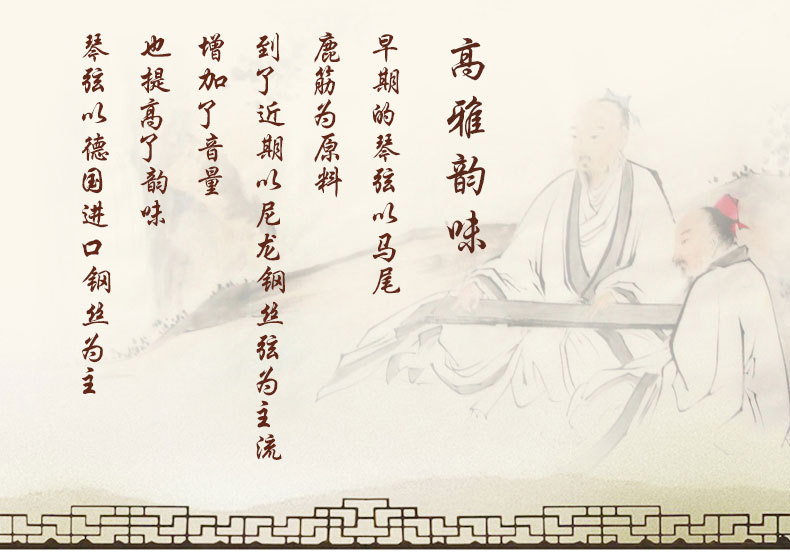 高雅韵味
早期的琴弦以马尾
鹿筋为原料
到了近期以尼龙钢丝弦为主流
增加了音量
也提高了韵味
琴弦以德国进口钢丝为主